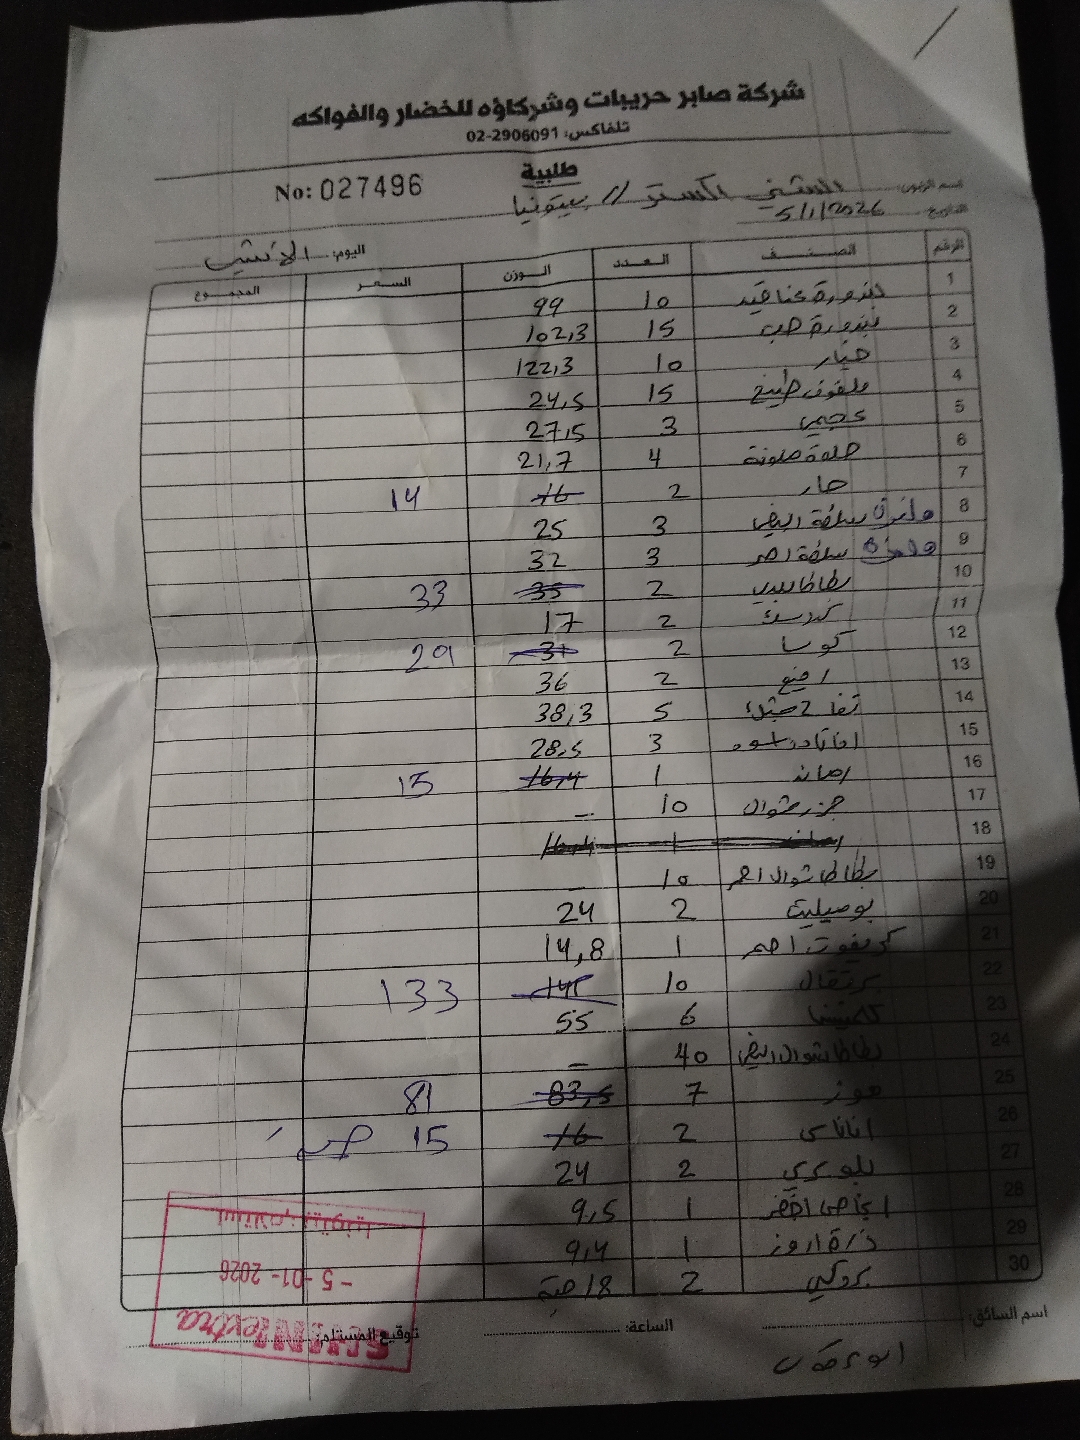 شركة صابر حريبات وشركاؤه للخضار والفواكه
تلفاكس: 02-2906091
طلبية
No: 027496
اسم الزبون: الشني اكسترا // بيتونيا
التاريخ: 5/1/2026
اليوم: الاثنين
الرقم الصنف العدد الوزن السعر المجموع
1 بندورة عناقيد 10 99
2 بندورة حب 15 102,3
3 خيار 10 122,3
4 ملفوف طبيخ 15 24,5
5 عجمي 3 27,5
6 حلوة ملونة 4 21,7
7 حار 2 16 14
8 ملفوف سلطة ابيض 3 25
9 ملفوف سلطة احمر 3 32
10 بطاطا بلدي 2 35 33
11 2 17
12 كوسا 2 31 29
13 2 36
14 تفاح 5 38,3
15 3 28,5
16 رمان 1 16,4 15
17 جزر شوال 10 -
18 رمان 1 16,4
19 بطاطا شوال احمر 10 -
20 بوميليت 2 24
21 كريفوت احمر 1 14,8
22 برتقال 10 145 133
23 كلمنتينا 6 55
24 بطاطا شوال ابيض 40 -
25 موز 7 83,5 81
26 اناناس 2 16 15
27 2 24
28 اجاص اخضر 1 9,5
29 1 9,4
30 بروكلي 2 18 حبة
اسم السائق:
الساعة:
توقيع المستلم:
استلام بيتونيا
- 5 -01- 2026
SHINI extra